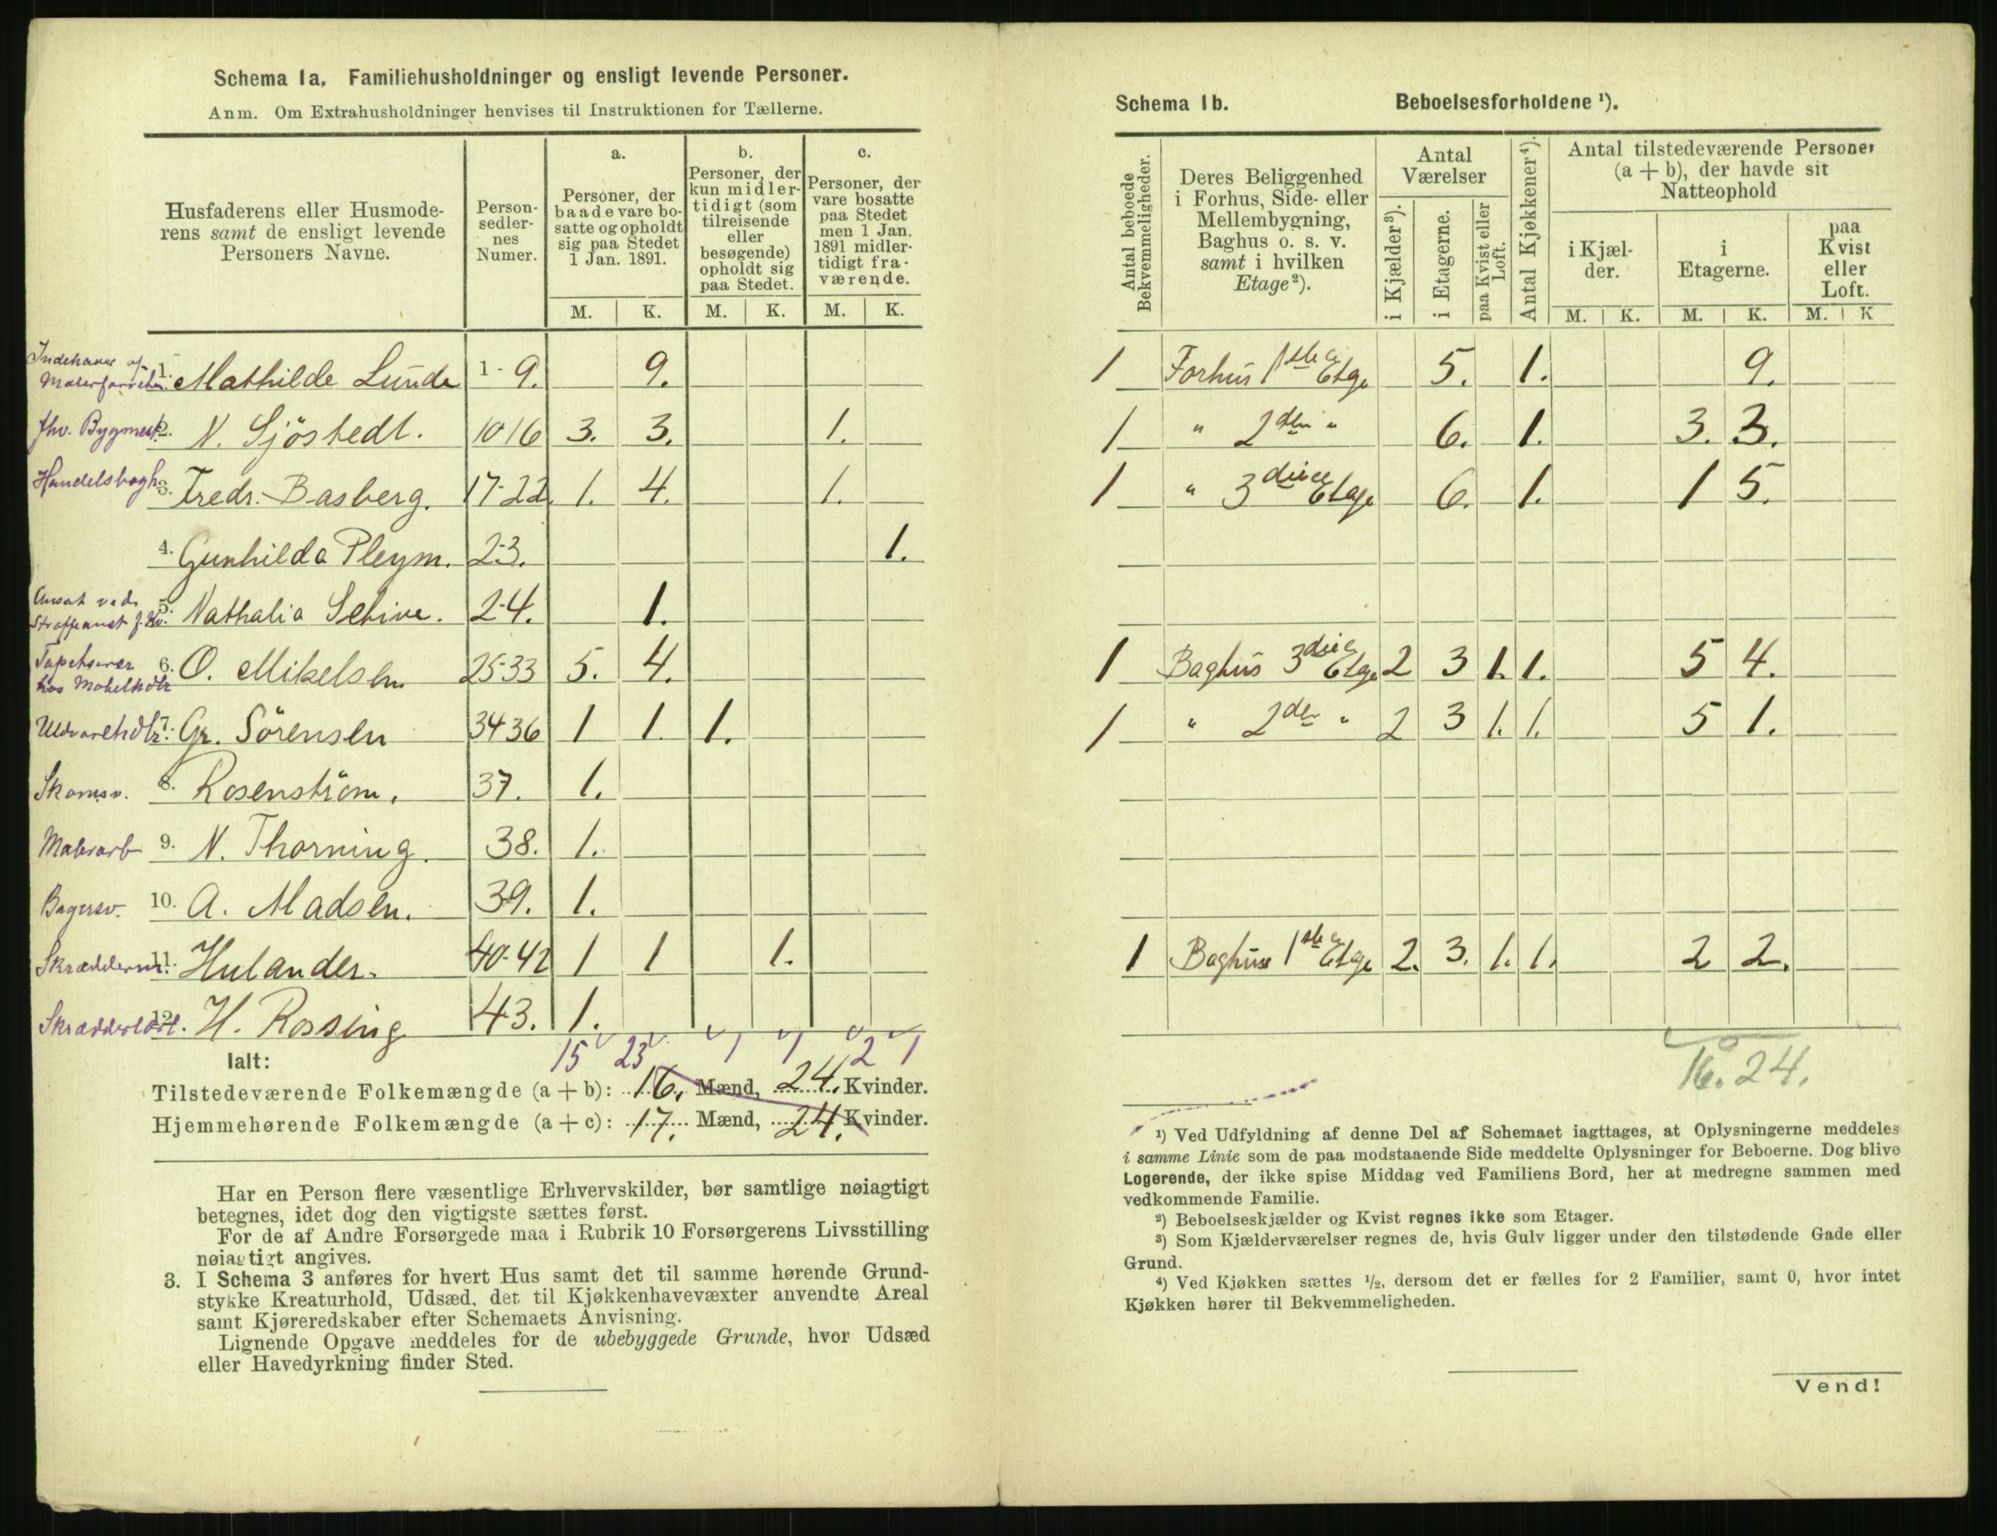 Schema 1a. Familiehusholdninger og ensligt levende Personer.
Anm. Om Extrahusholdninger henvises til Instruktionen for Tællerne.
Husfaderens eller Husmode-
rens samt de ensligt levende
Personers Navne.
Person-
sedler-
nes
Numer.
a.
Personer, der
baade vare bo-
satte og opholdt
sig paa Stedet
1 Jan. 1891.
b.
Personer, der
kun midler-
tidigt (som
tilreisende
eller
besøgende)
opholdt sig
paa Stedet.
c.
Personer, der
vare bosatte
paa Stedet
men 1 Jan.
1891 midler-
tidigt fra-
værende.
M. K. M. K. M. K.
Indehaver af
1. Mathilde Lunde 1-9. 9.
fhv. Bygmest. 2. N. Sjöstedt. 10 16 3. 3. 1.
Handelsbogh. 3. Fredr. Basberg. 17-22. 1. 4. 1.
4. Gunhilda Pleym. 23. 1.
Ansat ved
Straffeanst f. Kv. 5. Nathalia Schive. 24. 1.
Tapetserer
hos Møbelhdlr 6. O. Mikelsen 25-33 5. 4.
Uldvarehdlr. 7. Gr. Sörensen 34 36 1 1. 1.
Skomsv. 8. Rosenström. 37. 1.
Malerarb 9. N. Thorning. 38. 1.
Bagersv. 10. A. Madsen. 39. 1.
Skrædderm. 11. Hulander. 40-42 1 1 1.
12. H. Rossing 43. 1.
Ialt: 15 23 1 1 2 1
Tilstedeværende Folkemængde (a + b): 16. Mænd, 24. Kvinder.
Hjemmehørende Folkemængde (a + c): 17. Mænd, 24. Kvinder.
Har en Person flere væsentlige Erhvervskilder, bør samtlige nøiagtigt
betegnes, idet dog den vigtigste sættes først.
For de af Andre Forsørgede maa i Rubrik 10 Forsørgerens Livsstilling
nøiagtigt angives.
3. I Schema 3 anføres for hvert Hus samt det til samme hørende Grund-
stykke Kreaturhold, Udsæd, det til Kjøkkenhavevæxter anvendte Areal
samt Kjøreredskaber efter Schemaets Anvisning.
Lignende Opgave meddeles for de ubebyggede Grunde, hvor Udsæd
eller Havedyrkning finder Sted.
Schema 1b. Beboelsesforholdene ¹).
Antal beboede
Bekvemmeligheder.
Deres Beliggenhed
i Forhus, Side- eller
Mellembygning,
Baghus o. s. v.
samt i hvilken
Etage²).
Antal
Værelser
i Kjælder³).
i Etagerne.
paa Kvist eller
Loft.
Antal Kjøkkener⁴).
Antal tilstedeværende Personer
(a + b), der havde sit
Natteophold
i Kjæl-
der.
i
Etagerne.
paa
Kvist
eller
Loft.
M. K. M. K. M. K
1 Forhus 1ste Etge 5. 1. 9.
1 " 2den " 6. 1. 3. 3.
1 " 3die Etage 6. 1. 1 5.
1 Baghus 3die Etage 2 3 1. 1. 5 4.
1 " 2den " 2 3 1. 1. 5 1.
1 Baghus 1ste Etge 2. 3. 1. 1. 2 2.
16. 24.
¹) Ved Udfyldning af denne Del af Schemaet iagttages, at Oplysningerne meddeles
i samme Linie som de paa modstaaende Side meddelte Oplysninger for Beboerne. Dog blive
Logerende, der ikke spise Middag ved Familiens Bord, her at medregne sammen med
vedkommende Familie.
²) Beboelseskjælder og Kvist regnes ikke som Etager.
³) Som Kjælderværelser regnes de, hvis Gulv ligger under den tilstødende Gade eller
Grund.
⁴) Ved Kjøkken sættes ½, dersom det er fælles for 2 Familier, samt 0, hvor intet
Kjøkken hører til Bekvemmeligheden.
Vend!